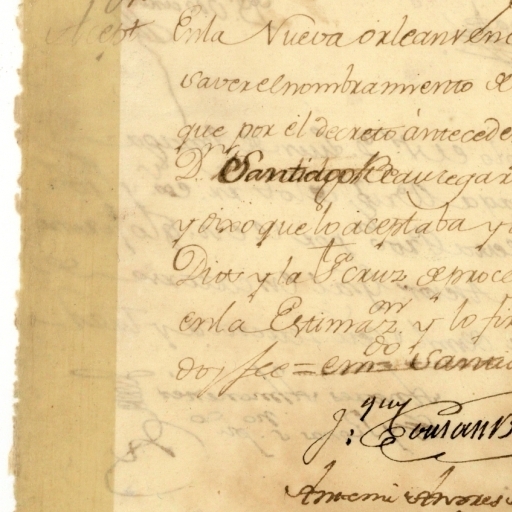 Acept En la Nueva orleans en
saver el nombramiento de
que por el decreto antecede
D.n Santiago Beauregar
y dixo que lo aceptaba y
Dios y la cruz de proce
en la Estimaz.on y lo fir
doy fee = em.do = Santia
J.
Ante mi